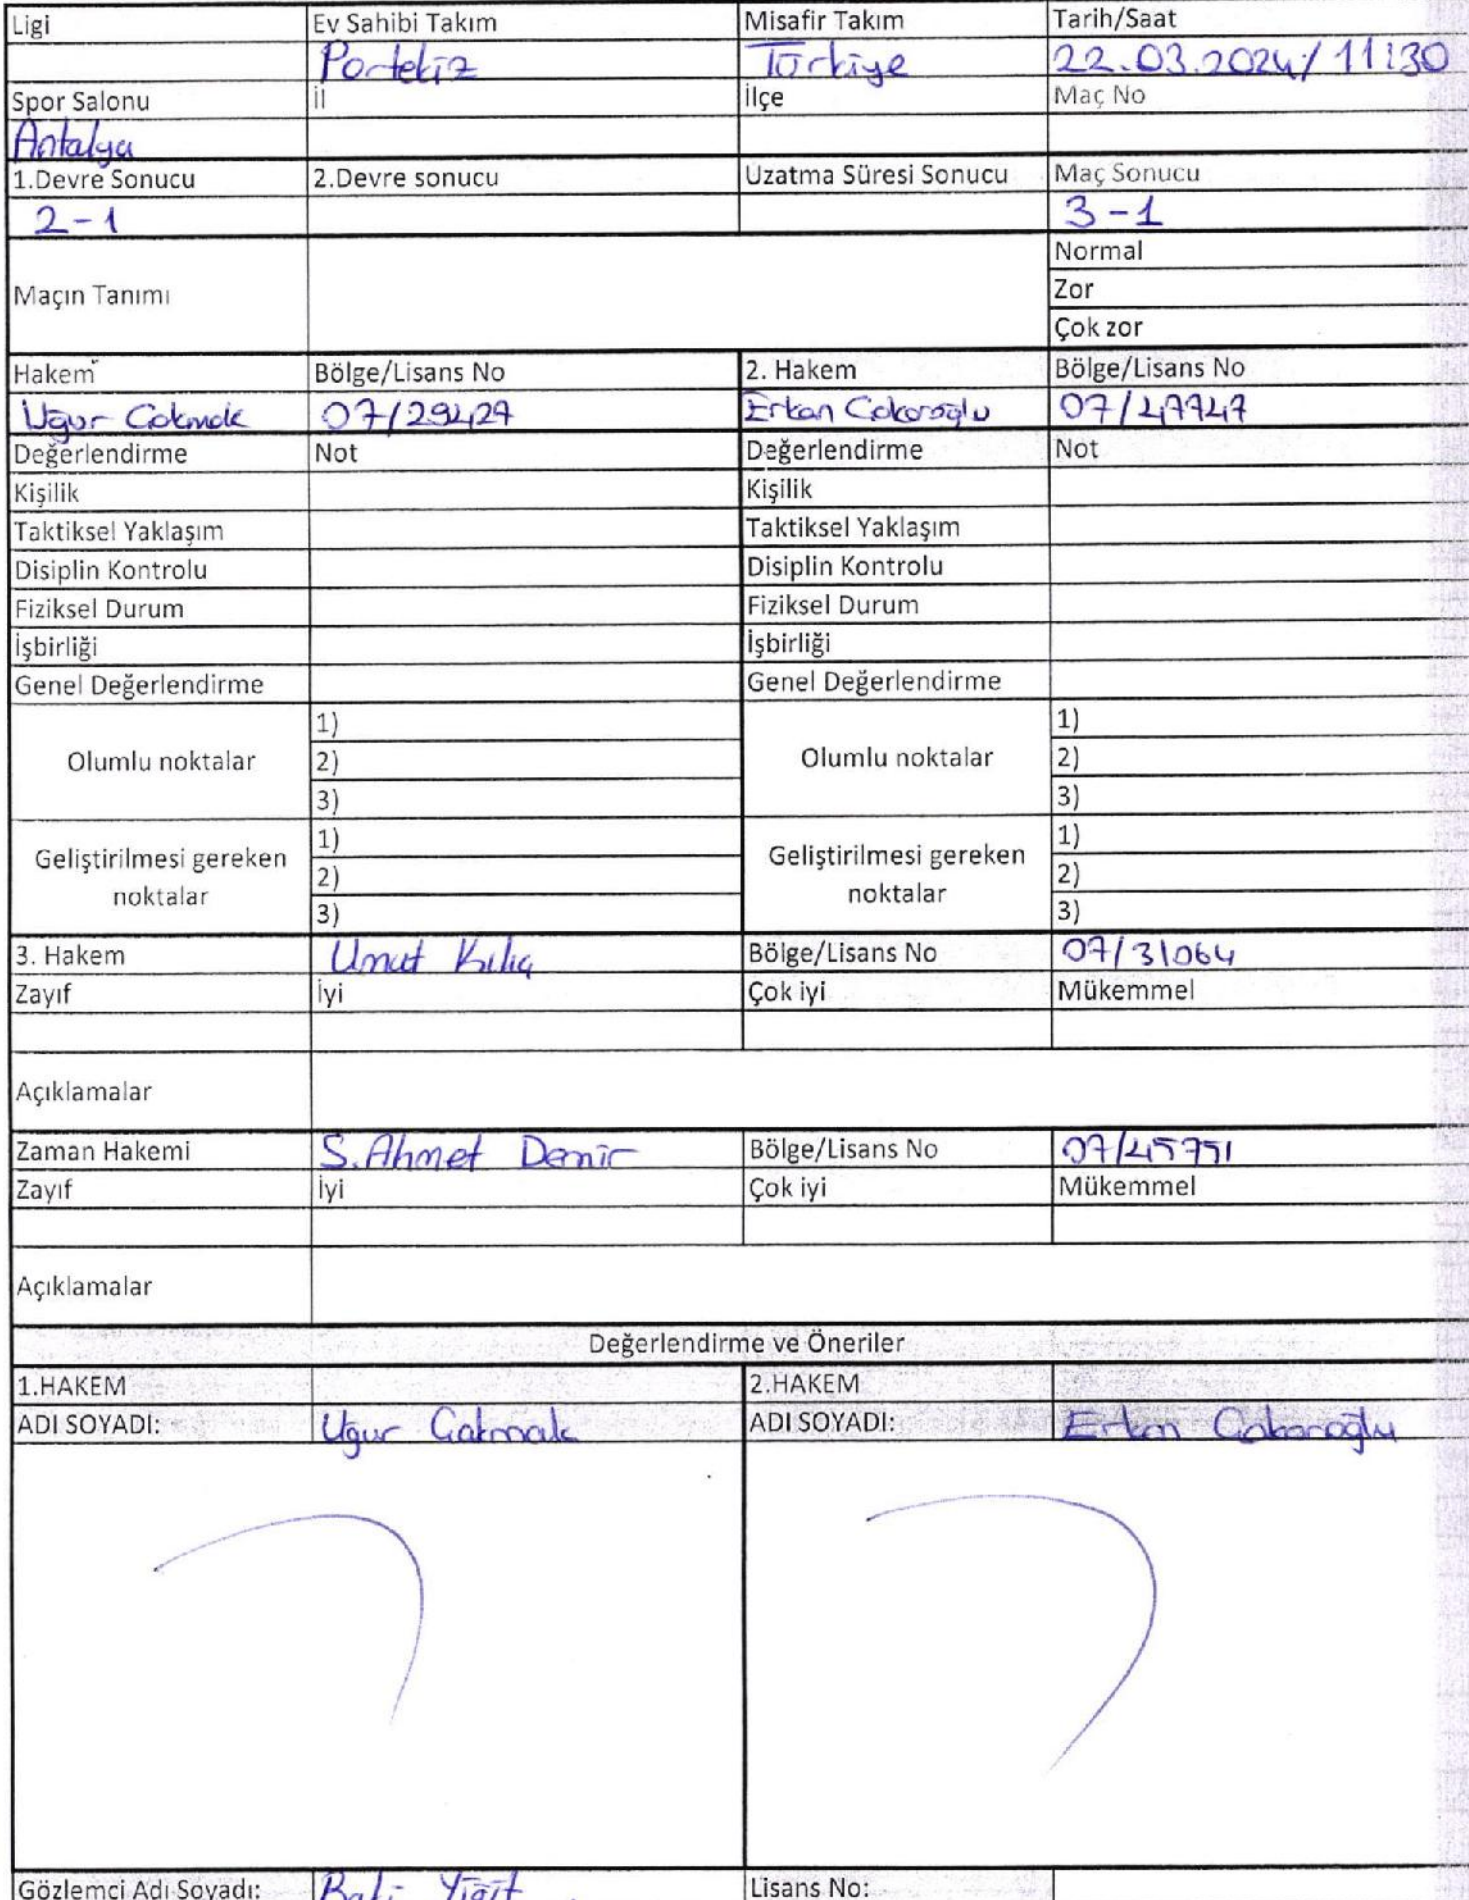 Ligi Ev Sahibi Takım Misafir Takım Tarih/Saat
Portekiz Türkiye 22.03.2024/ 11:30
Spor Salonu İl İlçe Maç No
Antalya
1.Devre Sonucu 2.Devre sonucu Uzatma Süresi Sonucu Maç Sonucu
2-1 3-1
Maçın Tanımı
Normal
Zor
Çok zor
Hakem Bölge/Lisans No 2. Hakem Bölge/Lisans No
Uğur Cakmak 07/29427 Erkan Cakaroğlu 07/47747
Değerlendirme Not Değerlendirme Not
Kişilik Kişilik
Taktiksel Yaklaşım Taktiksel Yaklaşım
Disiplin Kontrolu Disiplin Kontrolu
Fiziksel Durum Fiziksel Durum
İşbirliği İşbirliği
Genel Değerlendirme Genel Değerlendirme
1) 1)
Olumlu noktalar 2) Olumlu noktalar 2)
3) 3)
1) 1)
Geliştirilmesi gereken noktalar 2) Geliştirilmesi gereken noktalar 2)
3) 3)
3. Hakem Umut Kılıç Bölge/Lisans No 07/31064
Zayıf İyi Çok iyi Mükemmel
Açıklamalar
Zaman Hakemi S.Ahmet Demir Bölge/Lisans No 07/45751
Zayıf İyi Çok iyi Mükemmel
Açıklamalar
Değerlendirme ve Öneriler
1.HAKEM 2.HAKEM
ADI SOYADI: Uğur Cakmak ADI SOYADI: Erkan Cakaroğlu
Gözlemci Adı Soyadı: Yiğit Lisans No: